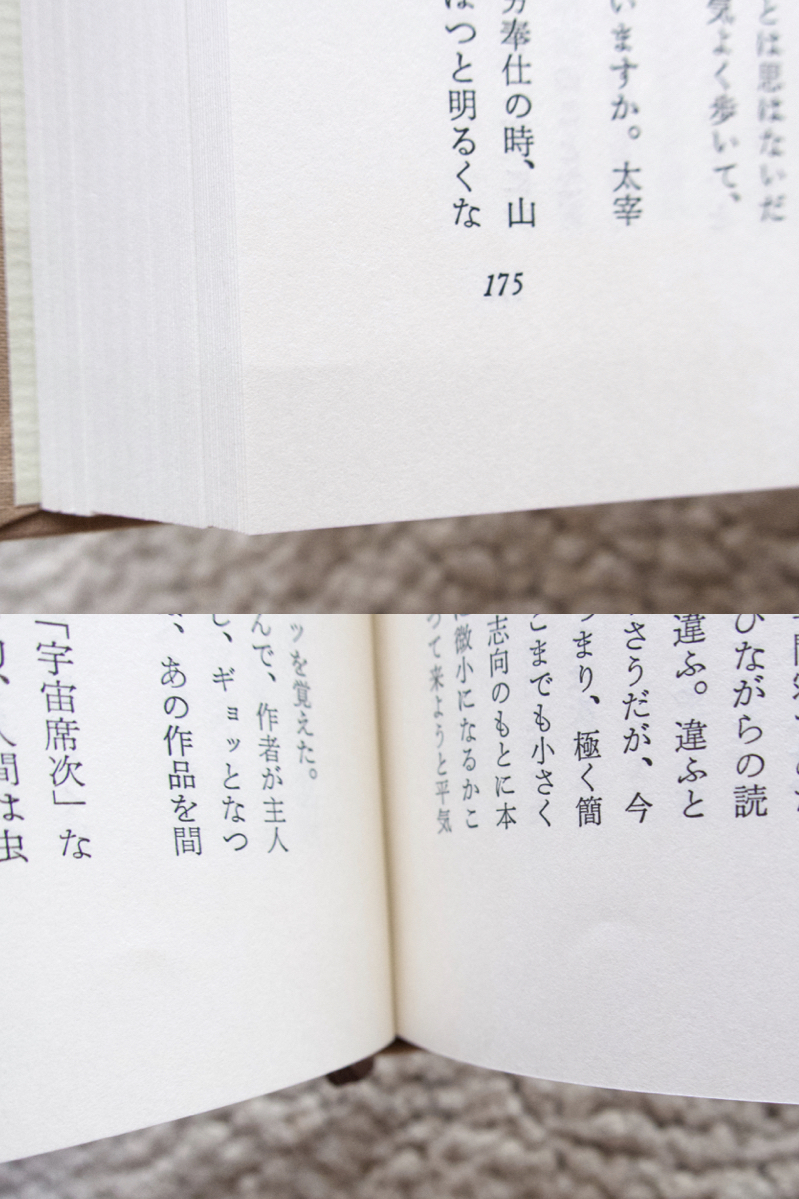 とは思はないだ
気よく歩いて、
いますか。太宰
奉仕の時、山
ぱつと明るくな
175
ひながらの読
違ふ。違ふと
さうだが、今
つまり、極く簡
こまでも小さく
志向のもとに本
に微小になるかこ
つて来ようと平気
ッを覚えた。
んで、作者が主人
し、ギョッとなつ
、あの作品を間
「宇宙席次」な
人間は虫